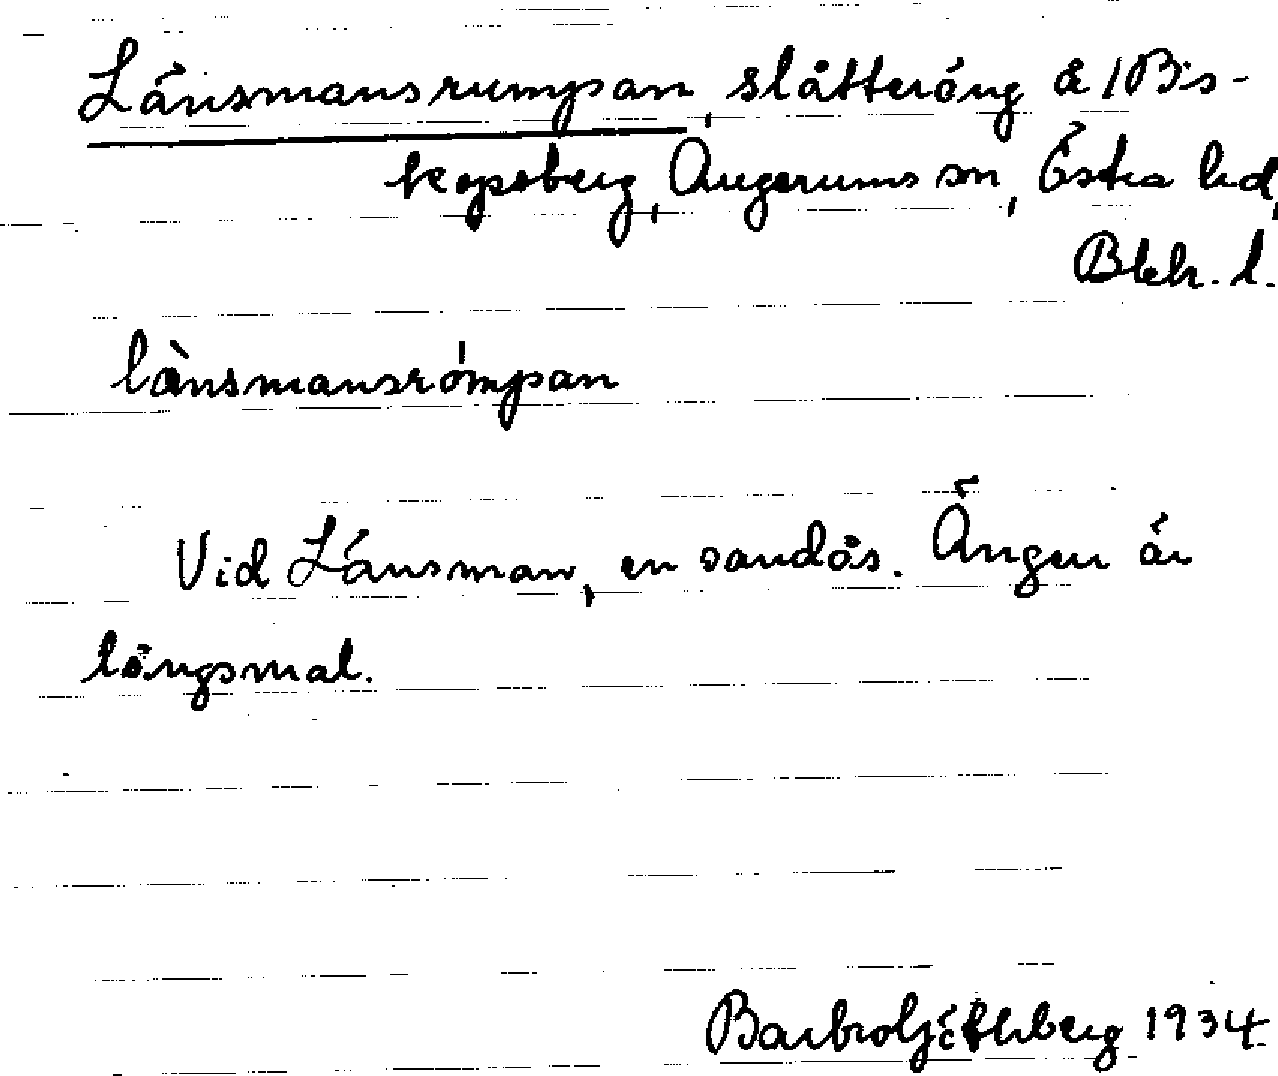 Länsmansrumpan, slåtteräng å 1 Bis-
kopsberg, Augerums sn, Östra hd,
Blek. l.
lànsmansrómpan
Vid Länsman, en sandås. Ängen är
långsmal.
Barbro 1934